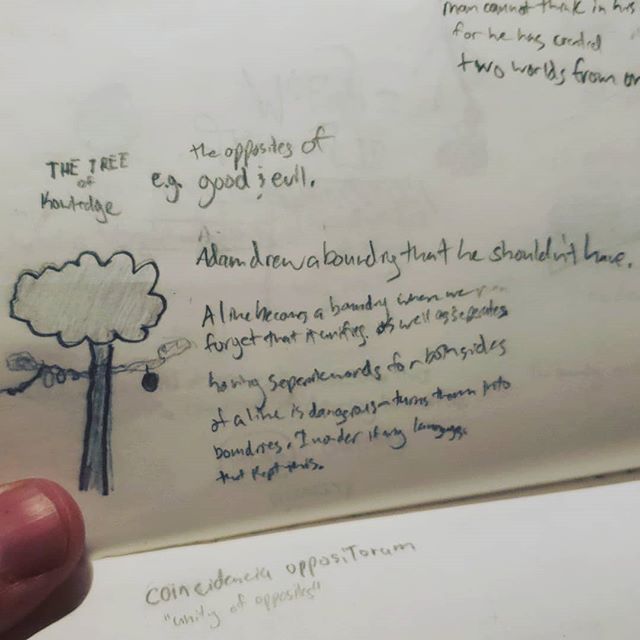 man cannot think in his
for he has created
two worlds from
the opposites of
e.g. good & evil.
THE TREE
of
Knowledge
Adam drew a boundry that he shouldn't have.
A line becomes a boundry when we
forget that it unifies as well as seperates
having seperate words for both sides
of a line is dangerous—turns them into
boundries. I wonder if any language
that kept this.
coincidencia oppositorum
"unity of opposites"